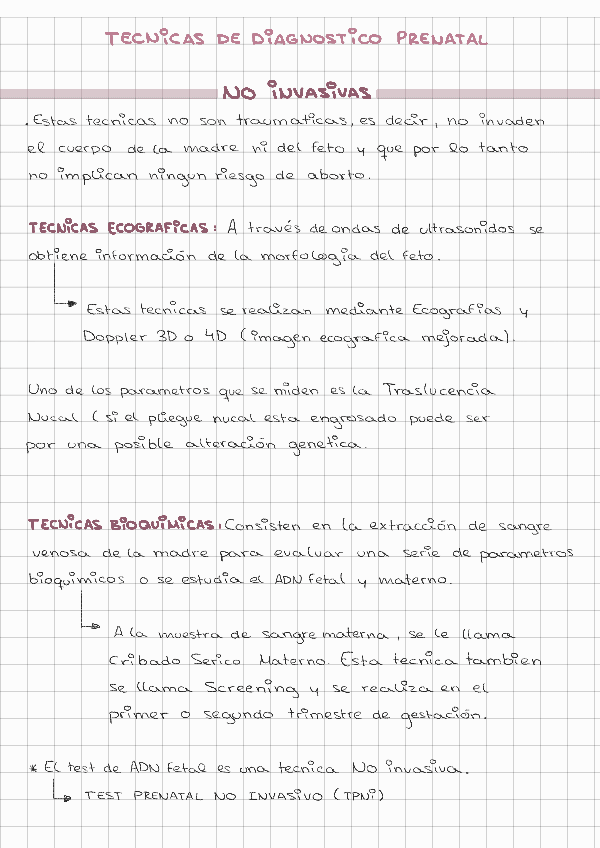 TECNICAS DE DIAGNOSTICO PRENATAL
NO INVASIVAS
. Estas tecnicas no son traumaticas, es decir, no invaden
el cuerpo de la madre ni del feto y que por lo tanto
no implican ningun riesgo de aborto.
TECNICAS ECOGRAFICAS: A través de ondas de ultrasonidos se
obtiene información de la morfologia del feto.
Estas tecnicas se realizan mediante Ecografias y
Doppler 3D o 4D (imagen ecografica mejorada).
Uno de los parametros que se miden es la Traslucencia
Nucal (si el pliegue nucal esta engrosado puede ser
por una posible alteración genetica.
TECNICAS BIOQUIMICAS: Consisten en la extracción de sangre
venosa de la madre para evaluar una serie de parametros
bioquimicos o se estudia el ADN fetal y materno.
A la muestra de sangre materna, se le llama
Cribado Serico Materno. Esta tecnica tambien
se llama Screening y se realiza en el
primer o segundo trimestre de gestación.
* El test de ADN fetal es una tecnica No invasiva.
TEST PRENATAL NO INVASIVO (TPNI)